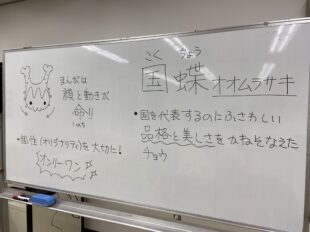 まんがは
顔と動きが
命!!
いのち
・個性(オリジナリティ)を大切に!
オンリーワン
こく ちょう
国蝶 オオムラサキ
・国を代表するのにふさわしい
品格と美しさをかねそなえた
チョウ